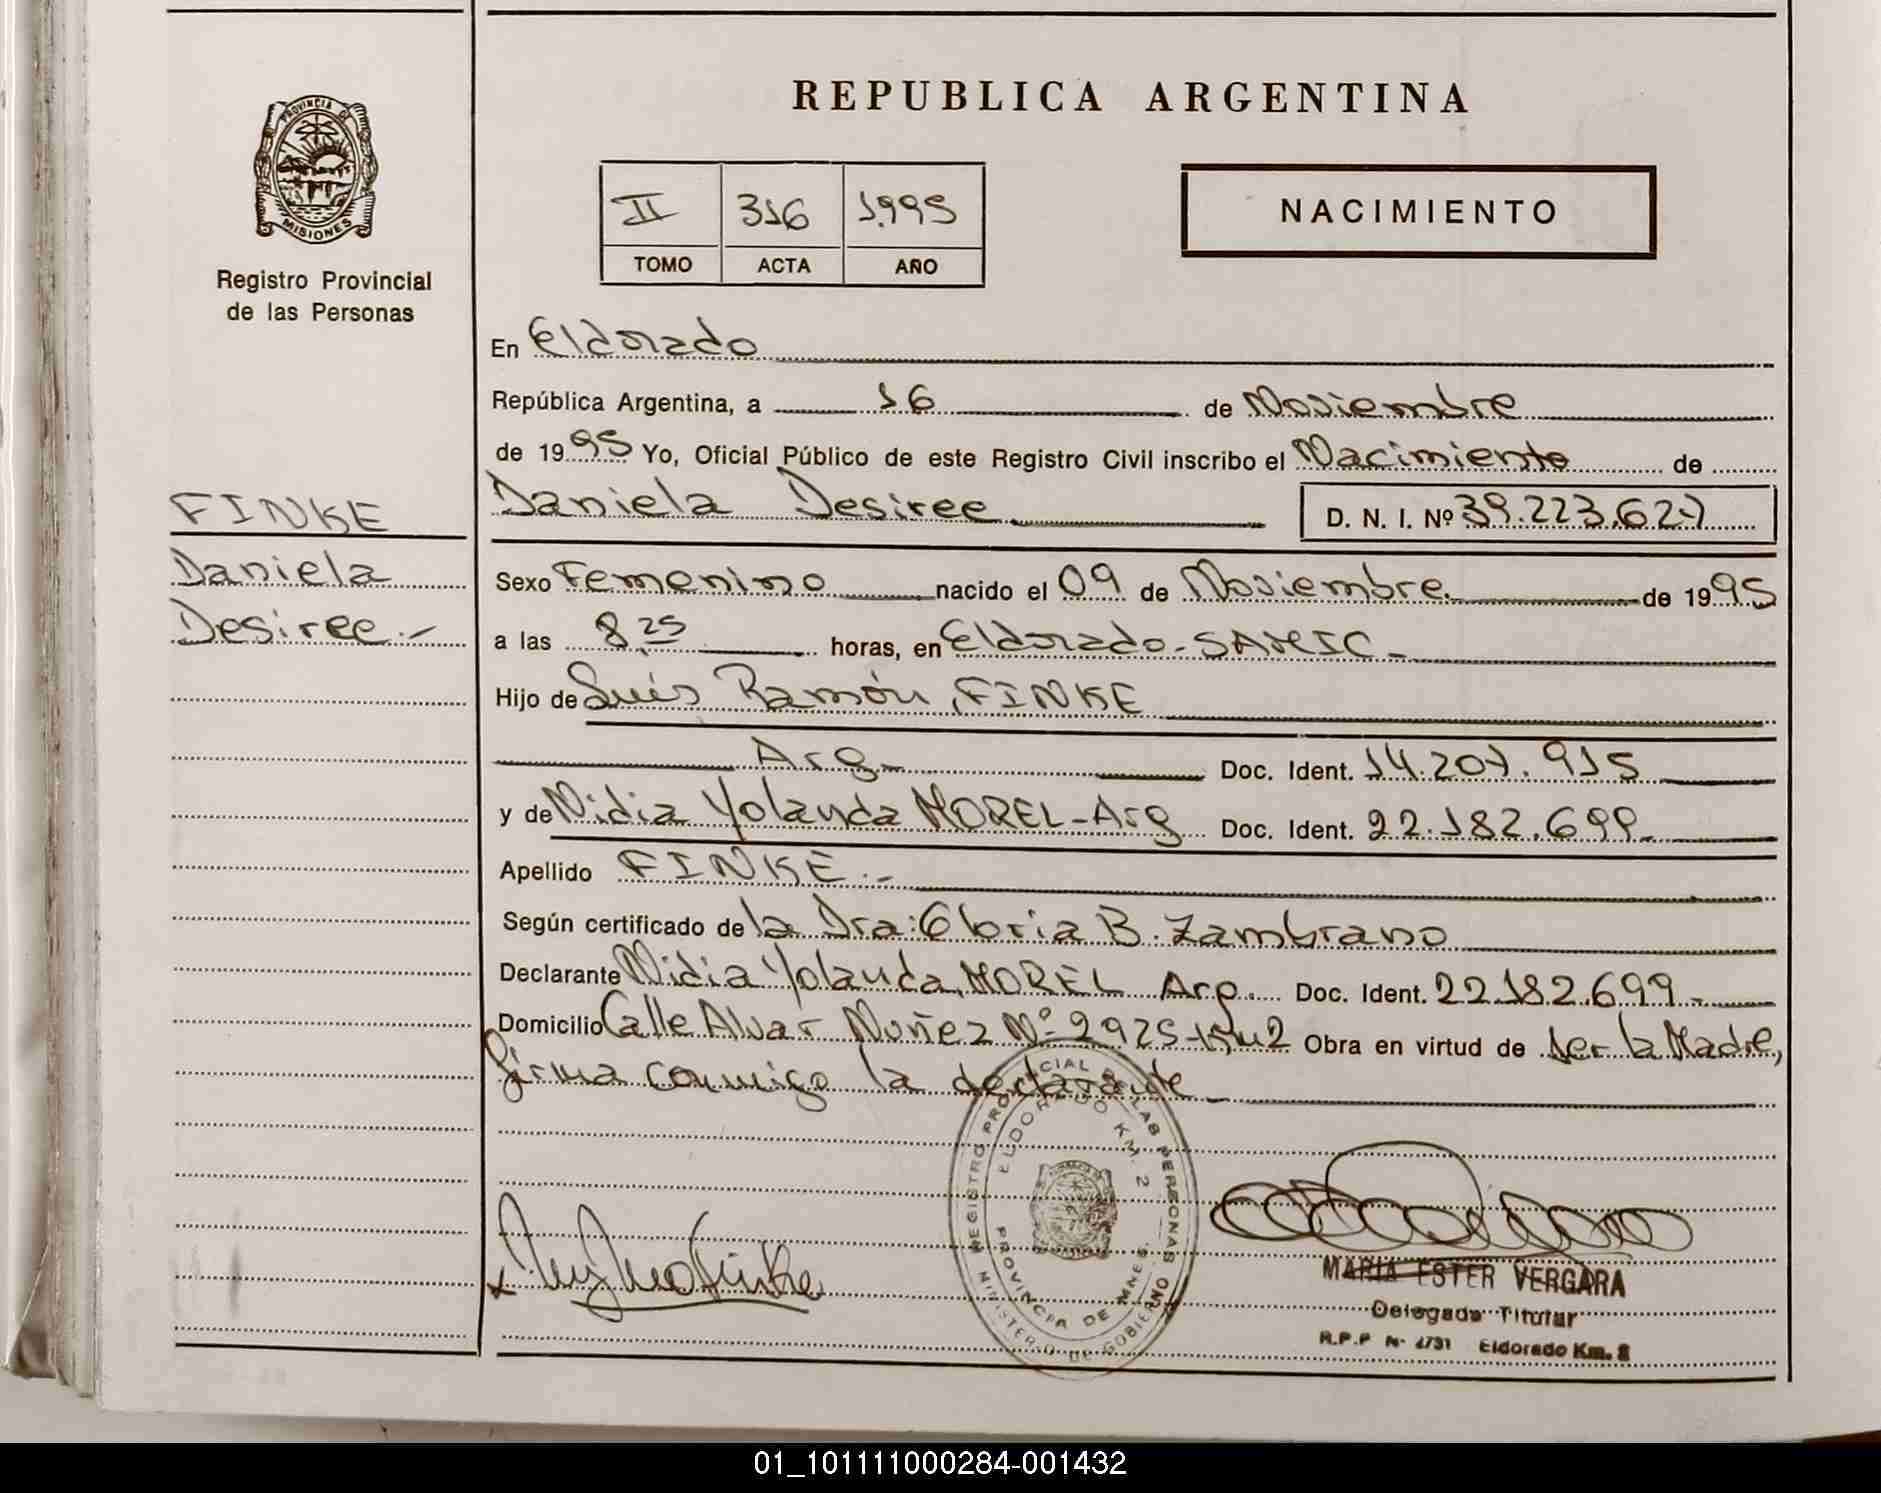 PROVINCIA DE
MISIONES
Registro Provincial
de las Personas
REPUBLICA ARGENTINA
II 316 1.995
TOMO ACTA AÑO
NACIMIENTO
En Eldorado
República Argentina, a 16 de Noviembre
de 1995 Yo, Oficial Público de este Registro Civil inscribo el Nacimiento de
FINKE
Daniela Desiree D. N. I. Nº 39.223.627
Daniela
Desiree.-
Sexo Femenino nacido el 09 de Noviembre. de 1995
a las 8,25 horas, en Eldorado-SAMIC-
Hijo de Luis Ramón, FINKE
Arg- Doc. Ident. 14.207.915
y de Nidia Yolanda MOREL-Arg Doc. Ident. 22.182.699-
Apellido FINKE.-
Según certificado de la Dra: Gloria B. Zambrano
Declarante Nidia Yolanda, MOREL Arg. Doc. Ident. 22.182.699-
Domicilio Calle Alvar Nuñez Nº 2925-Km2 Obra en virtud de ser la Madre,
firma conmigo la declarante-
REGISTRO PROVINCIAL DE LAS PERSONAS
ELDORADO KM. 2
PROVINCIA DE MNES.
MINISTERIO DE GOBIERNO
MARIA ESTER VERGARA
Delegada Titular
R.P.P Nº 2731 Eldorado Km. 2
01_101111000284-001432